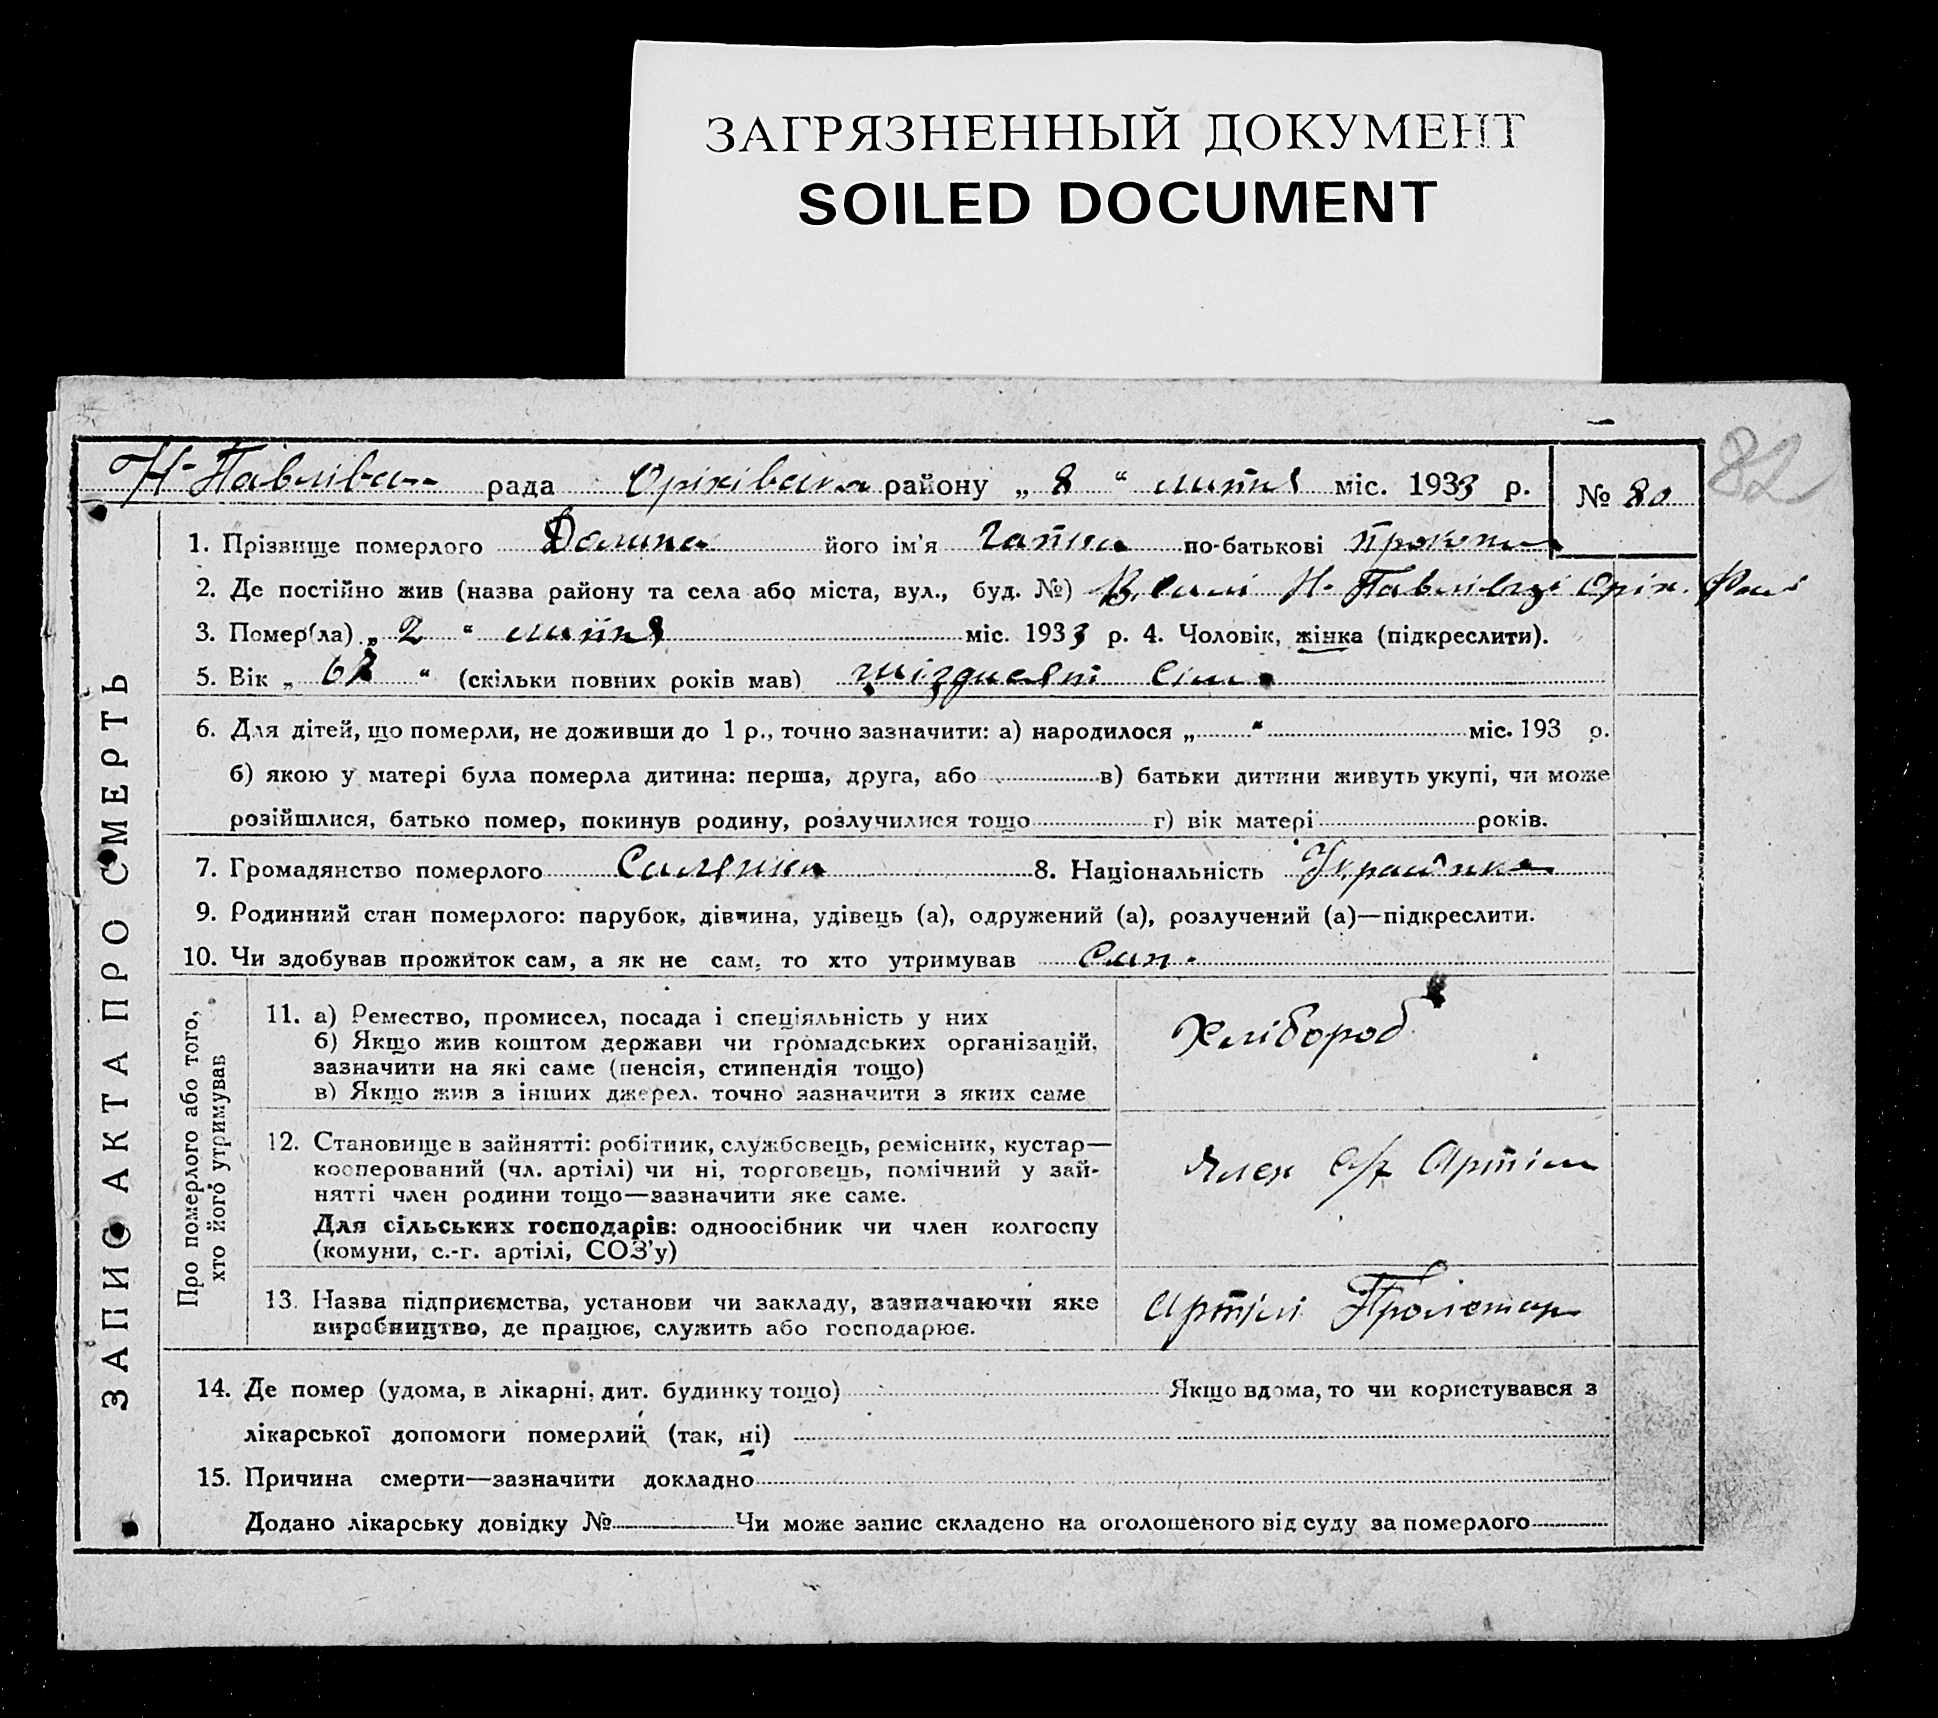 ЗАГРЯЗНЕННЫЙ ДОКУМЕНТ
SOILED DOCUMENT
82
Н-Павлівсь рада Оріхівський району „ 8 “ липня міс. 1933 р. № 80
ЗАПИС АКТА ПРО СМЕРТЬ
1. Прізвище померлого Долина його ім'я Гапка по-батькові
2. Де постійно жив (назва району та села або міста, вул., буд. №) В селі Н-Павлівці Оріх.
3. Помер(ла) „ 2 “ липня міс. 1933 р. 4. Чоловік, жінка (підкреслити).
5. Вік „ 67 “ (скільки повних років мав) шіздисят сім
6. Для дітей, що померли, не доживши до 1 р., точно зазначити: а) народилося „ “ міс. 193 р.
б) якою у матері була померла дитина: перша, друга, або в) батьки дитини живуть укупі, чи може
розійшлися, батько помер, покинув родину, розлучилися тощо г) вік матері років.
7. Громадянство померлого Селянка 8. Національність Українка
9. Родинний стан померлого: парубок, дівчина, удівець (а), одружений (а), розлучений (а)—підкреслити.
10. Чи здобував прожиток сам, а як не сам, то хто утримував
Про померлого або того,
хто його утримував
11. а) Ремество, промисел, посада і спеціяльність у них
б) Якщо жив коштом держави чи громадських організацій,
зазначити на які саме (пенсія, стипендія тощо)
в) Якщо жив з інших джерел, точно зазначити з яких саме
Хлібороб
12. Становище в зайнятті: робітник, службовець, ремісник, кустар—
кооперований (чл. артілі) чи ні, торговець, помічний у зай-
нятті член родини тощо—зазначити яке саме.
Для сільських господарів: одноосібник чи член колгоспу
(комуни, с.-г. артілі, СОЗ'у)
Член с/г Артіли
13. Назва підприємства, установи чи закладу, зазначаючи яке
виробництво, де працює, служить або господарює.
Артілі Пролетар
14. Де помер (удома, в лікарні, дит. будинку тощо) Якщо вдома, то чи користувався з
лікарської допомоги померлий (так, ні)
15. Причина смерти—зазначити докладно
Додано лікарську довідку № Чи може запис складено на оголошеного від суду за померлого